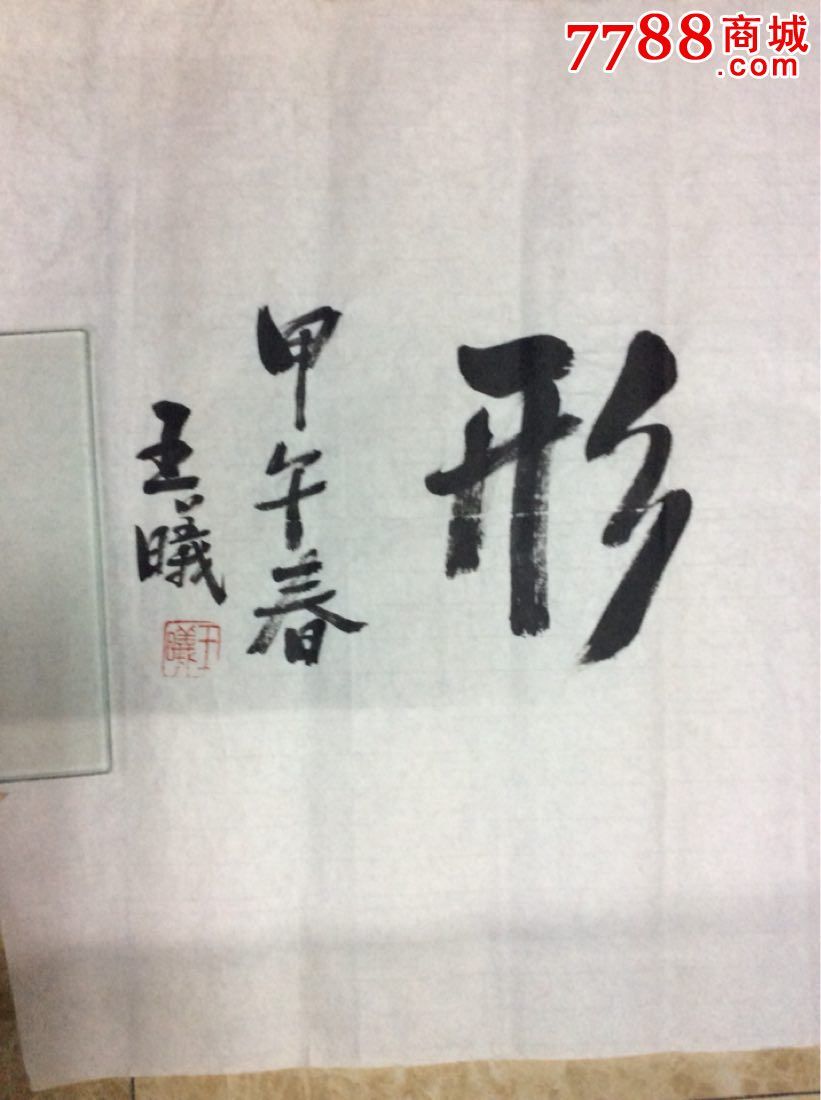 7788商城
.com
形
甲午春
王曦
王曦